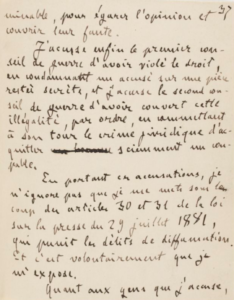 37
minable, pour égarer l'opinion et
couvrir leur faute.
J'accuse enfin le premier con-
seil de guerre d'avoir violé le droit,
en condamnant un accusé sur une pièce
restée secrète, et j'accuse le second con-
seil de guerre d'avoir couvert cette
illégalité, par ordre, en commettant
à son tour le crime juridique d'ac-
quitter sciemment un cou-
pable.
En portant ces accusations, je
n'ignore pas que je me mets sous le
coup des articles 30 et 31 de la loi
sur la presse du 29 juillet 1881,
qui punit les délits de diffamation.
Et c'est volontairement que je
m'expose.
Quant aux gens que j'accuse,